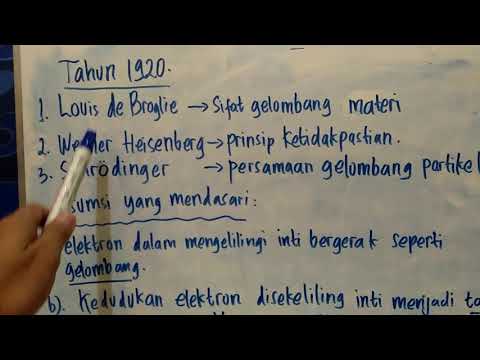 Tahun 1920.
1. Louis de Broglie → Sifat gelombang materi
2. Heisenberg → prinsip ketidakpastian.
3. → persamaan gelombang
yang mendasari:
elektron dalam mengelilingi inti bergerak seperti
gelombang.
b). Kedudukan elektron disekeliling inti menjadi